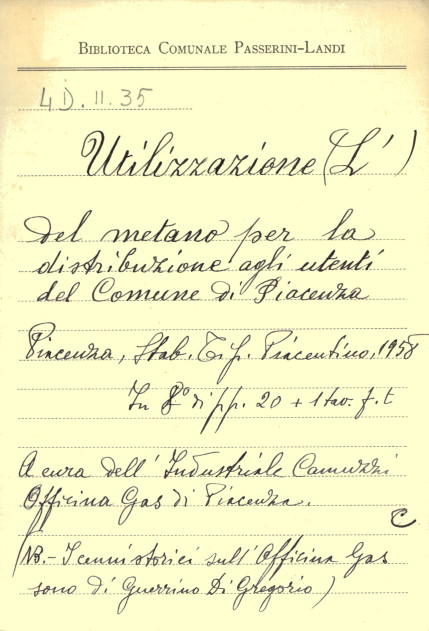 BIBLIOTECA COMUNALE PASSERINI-LANDI
4 D. II. 35
Utilizzazione (L')
del metano per la
distribuzione agli utenti
del Comune di Piacenza
Piacenza, Stab. Tip. Piacentino, 1958
In 8° di pp. 20 + 1 tav. f. t.
A cura dell'Industriale Camuzzi
Officina Gas di Piacenza.
C
(NB. - I cenni storici sull'Officina Gas
sono di Guerrino Di Gregorio)